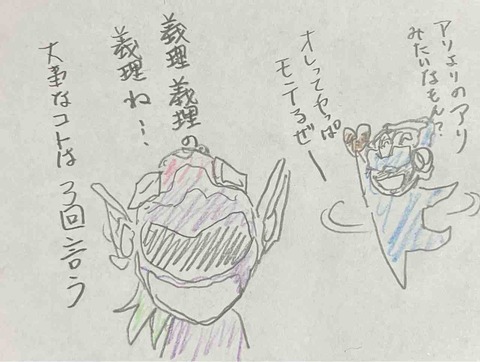 アリよりのアリ
みたいなもん?
オレってやっぱ
モテるぜー
義理 義理の
義理ね…
大事なコトは3回言う